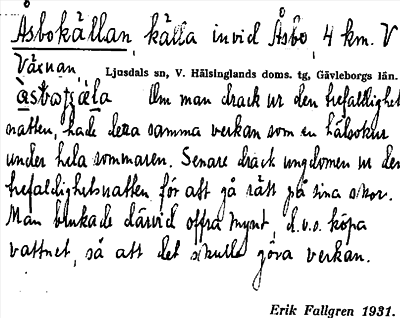 Åsbokällan, källa invid Åsbo, 4 km. V
Växnan,
Ljusdals sn, V. Hälsinglands doms. tg, Gävleborgs län.
Om man drack ur den trefaldighets
natten, hade detta samma verkan som en hälsokur
under hela sommaren. Senare drack ungdomen ur den
trefaldighetsnatten för att gå rätt på sina skor.
Man brukade därvid offra mynt, d.v.s. köpa
vattnet, så att det skulle göra verkan.
Erik Fallgren 1931.